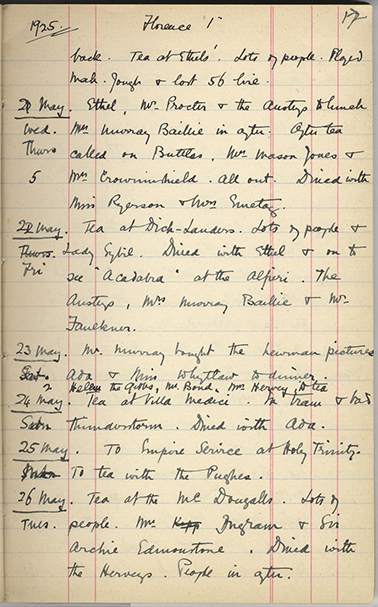 1925. Florence 1 17
back. Tea at Ethels'. Lots of people. Played
Mah-Jongh & lost 56 lire.
20 May. Ethel, Mr. Procter & the to lunch
Wed. Mrs Murray Baillie in after. After tea
Thurs called on Buttles, Mrs Mason Jones &
5 Mrs Crowninshield. All out. Dined with
Miss Ryerson &
22 May. Tea at Dick-Lauders. Lots of people &
Thurs. Lady Sybil. Dined with Ethel & on to
Fri see "Acadabra" at the Alfieri. The
, Mrs Murray Baillie & Mr.
Faulkner.
23 May. Mr. Murray bought the Newman pictures
Sat. Ada & Miss Whytlaw to dinner.
2 Helen the Gibbs, Mr. Bond, Mrs Hervey, to tea
24 May. Tea at Villa Medici. In tram & bad
Sun thunderstorm. Dined with Ada.
25 May. To Empire Service at Holy Trinity.
To tea with the Pughes.
26 May. Tea at the Mc Dougalls. Lots of
Tues. people. Mrs Ingram & Sir
Archie Edmonstone. Dined with
the Herveys. People in after.